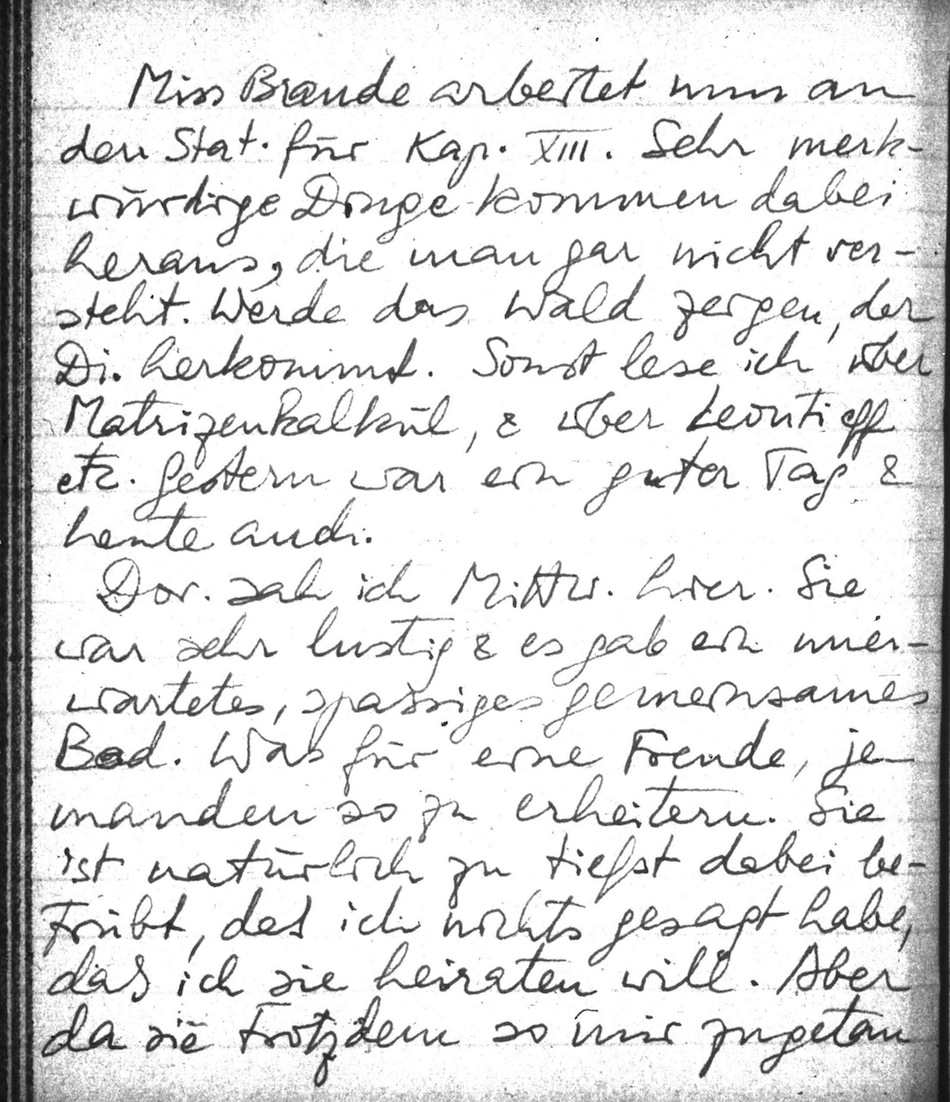 Miss Brande arbeitet nun an
den Stat. für Kap. XIII. Sehr merk-
würdige Dinge kommen dabei
heraus, die man gar nicht ver-
steht. Werde das Wald zeigen, der
Di. herkommt. Sonst lese ich über
Matrizenkalkül, & über Leontieff
etc. Gestern war ein guter Tag &
heute auch.
Dor. sah ich Mittw. hier. Sie
war sehr lustig & es gab ein uner-
wartetes, spassiges gemeinsames
Bad. Was für eine Freude, je-
manden so zu erheitern. Sie
ist natürlich zu tiefst dabei be-
trübt, daß ich nichts gesagt habe,
daß ich sie heiraten will. Aber
da sie trotzdem so mir zugetan